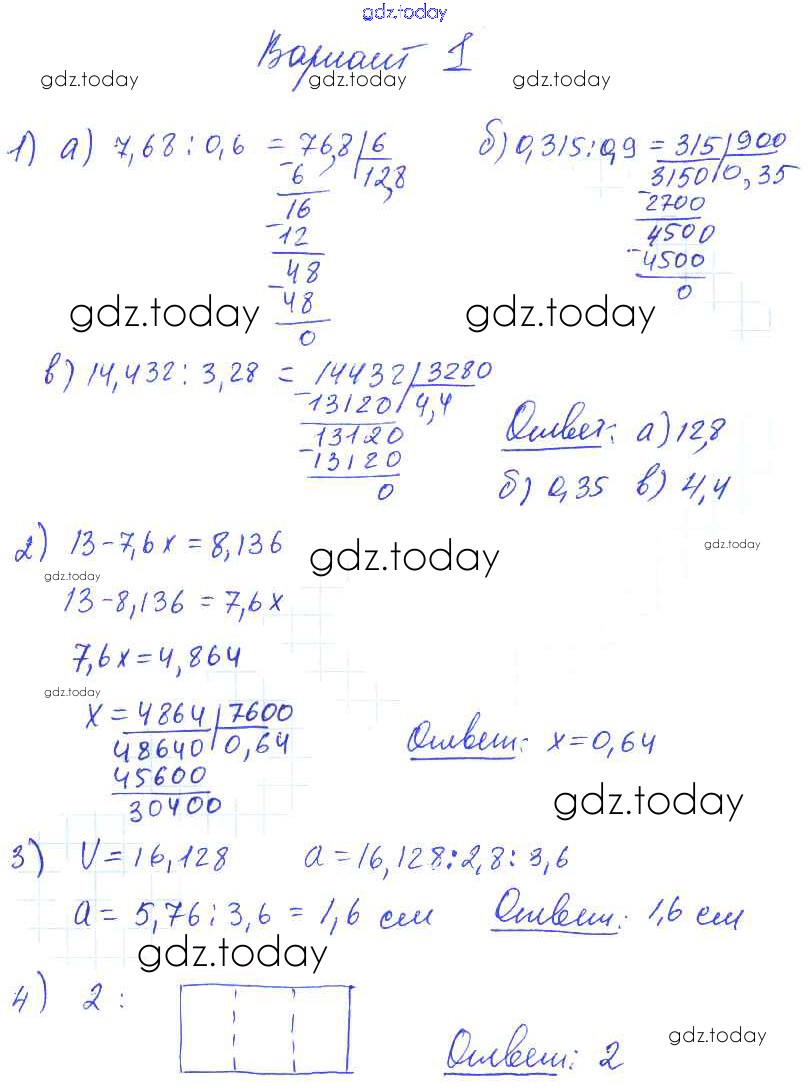 gdz.today
Вариант 1
gdz.today gdz.today gdz.today
1) а) 7,68 : 0,6 = 76,8 | 6
6 12,8
16
12
48
48
0
б) 0,315 : 0,9 = 315 | 900
3150 0,35
2700
4500
4500
0
gdz.today gdz.today
в) 14,432 : 3,28 = 14432 | 3280
13120 4,4
13120
13120
0
Ответ: а) 12,8
б) 0,35 в) 4,4
2) 13 - 7,6x = 8,136
gdz.today gdz.today
gdz.today
13 - 8,136 = 7,6x
7,6x = 4,864
gdz.today
x = 4864 | 7600
48640 0,64
45600
30400
Ответ: x = 0,64
gdz.today
3) V = 16,128 a = 16,128 : 2,8 : 3,6
a = 5,76 : 3,6 = 1,6 см Ответ: 1,6 см
gdz.today
4) 2 :
Ответ: 2
gdz.today